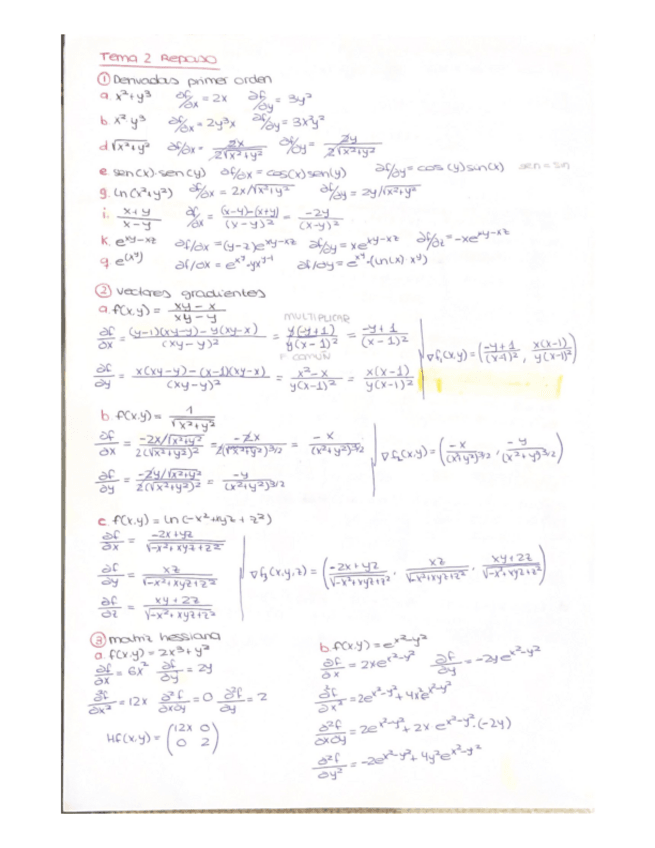 Tema 2 Repaso
① Derivadas primer orden
a. x²+y³ ∂f/∂x = 2x ∂f/∂y = 3y²
b. x² y³ ∂f/∂x = 2y³x ∂f/∂y = 3x²y²
d √x²+y² ∂f/∂x = 2x/2√x²+y² ∂f/∂y = 2y/2√x²+y²
e. sen(x)·sen(y) ∂f/∂x = cos(x)sen(y) ∂f/∂y = cos(y)sin(x) sen = sin
g. ln(x²+y²) ∂f/∂x = 2x/√x²+y² ∂f/∂y = 2y/√x²+y²
i. x+y/x-y ∂f/∂x = (x-y)-(x+y)/(x-y)² = -2y/(x-y)²
k. e^xy-xz ∂f/∂x = (y-z)e^xy-xz ∂f/∂y = xe^xy-xz ∂f/∂z = -xe^xy-xz
q. e^(x^y) ∂f/∂x = e^x^y·yx^y-1 ∂f/∂y = e^x^y·(ln(x) x^y)
② vectores gradientes
a. f(x,y) = xy-x/xy-y
MULTIPLICAR
∂f/∂x = (y-1)(xy-y)-y(xy-x)/(xy-y)² = y(-y+1)/y(x-1)² = -y+1/(x-1)²
∇f₁(x,y) = (-y+1/(x-1)², x(x-1)/y(x-1)²)
F COMÚN
∂f/∂y = x(xy-y)-(x-1)(xy-x)/(xy-y)² = x²-x/y(x-1)² = x(x-1)/y(x-1)²
b f(x,y) = 1/√x²+y²
∂f/∂x = -2x/√x²+y²/2(√x²+y²)² = -2x/2(√x²+y²)^3/2 = -x/(x²+y²)^3/2
∇f₂(x,y) = (-x/(x²+y²)^3/2, -y/(x²+y²)^3/2)
∂f/∂y = -2y/√x²+y²/2(√x²+y²)² = -y/(x²+y²)^3/2
c. f(x,y) = ln(-x²+xyz+z²)
∂f/∂x = -2x+yz/√-x²+xyz+z²
∂f/∂y = xz/√-x²+xyz+z²
∇f₃(x,y,z) = (-2x+yz/√-x²+xyz+z², xz/√-x²+xyz+z², xy+2z/√-x²+xyz+z²)
∂f/∂z = xy+2z/√-x²+xyz+z²
③ matriz hessiana
a. f(x,y) = 2x³+y²
∂f/∂x = 6x² ∂f/∂y = 2y
∂²f/∂x² = 12x ∂²f/∂x∂y = 0 ∂²f/∂y = 2
Hf(x,y) = (12x 0
0 2)
b. f(x,y) = e^x²-y²
∂f/∂x = 2xe^x²-y² ∂f/∂y = -2ye^x²-y²
∂²f/∂x² = 2e^x²-y²+4x²e^x²-y²
∂²f/∂x∂y = 2e^x²-y²+2x·e^x²-y²·(-2y)
∂²f/∂y² = -2e^x²-y²+4y²e^x²-y²